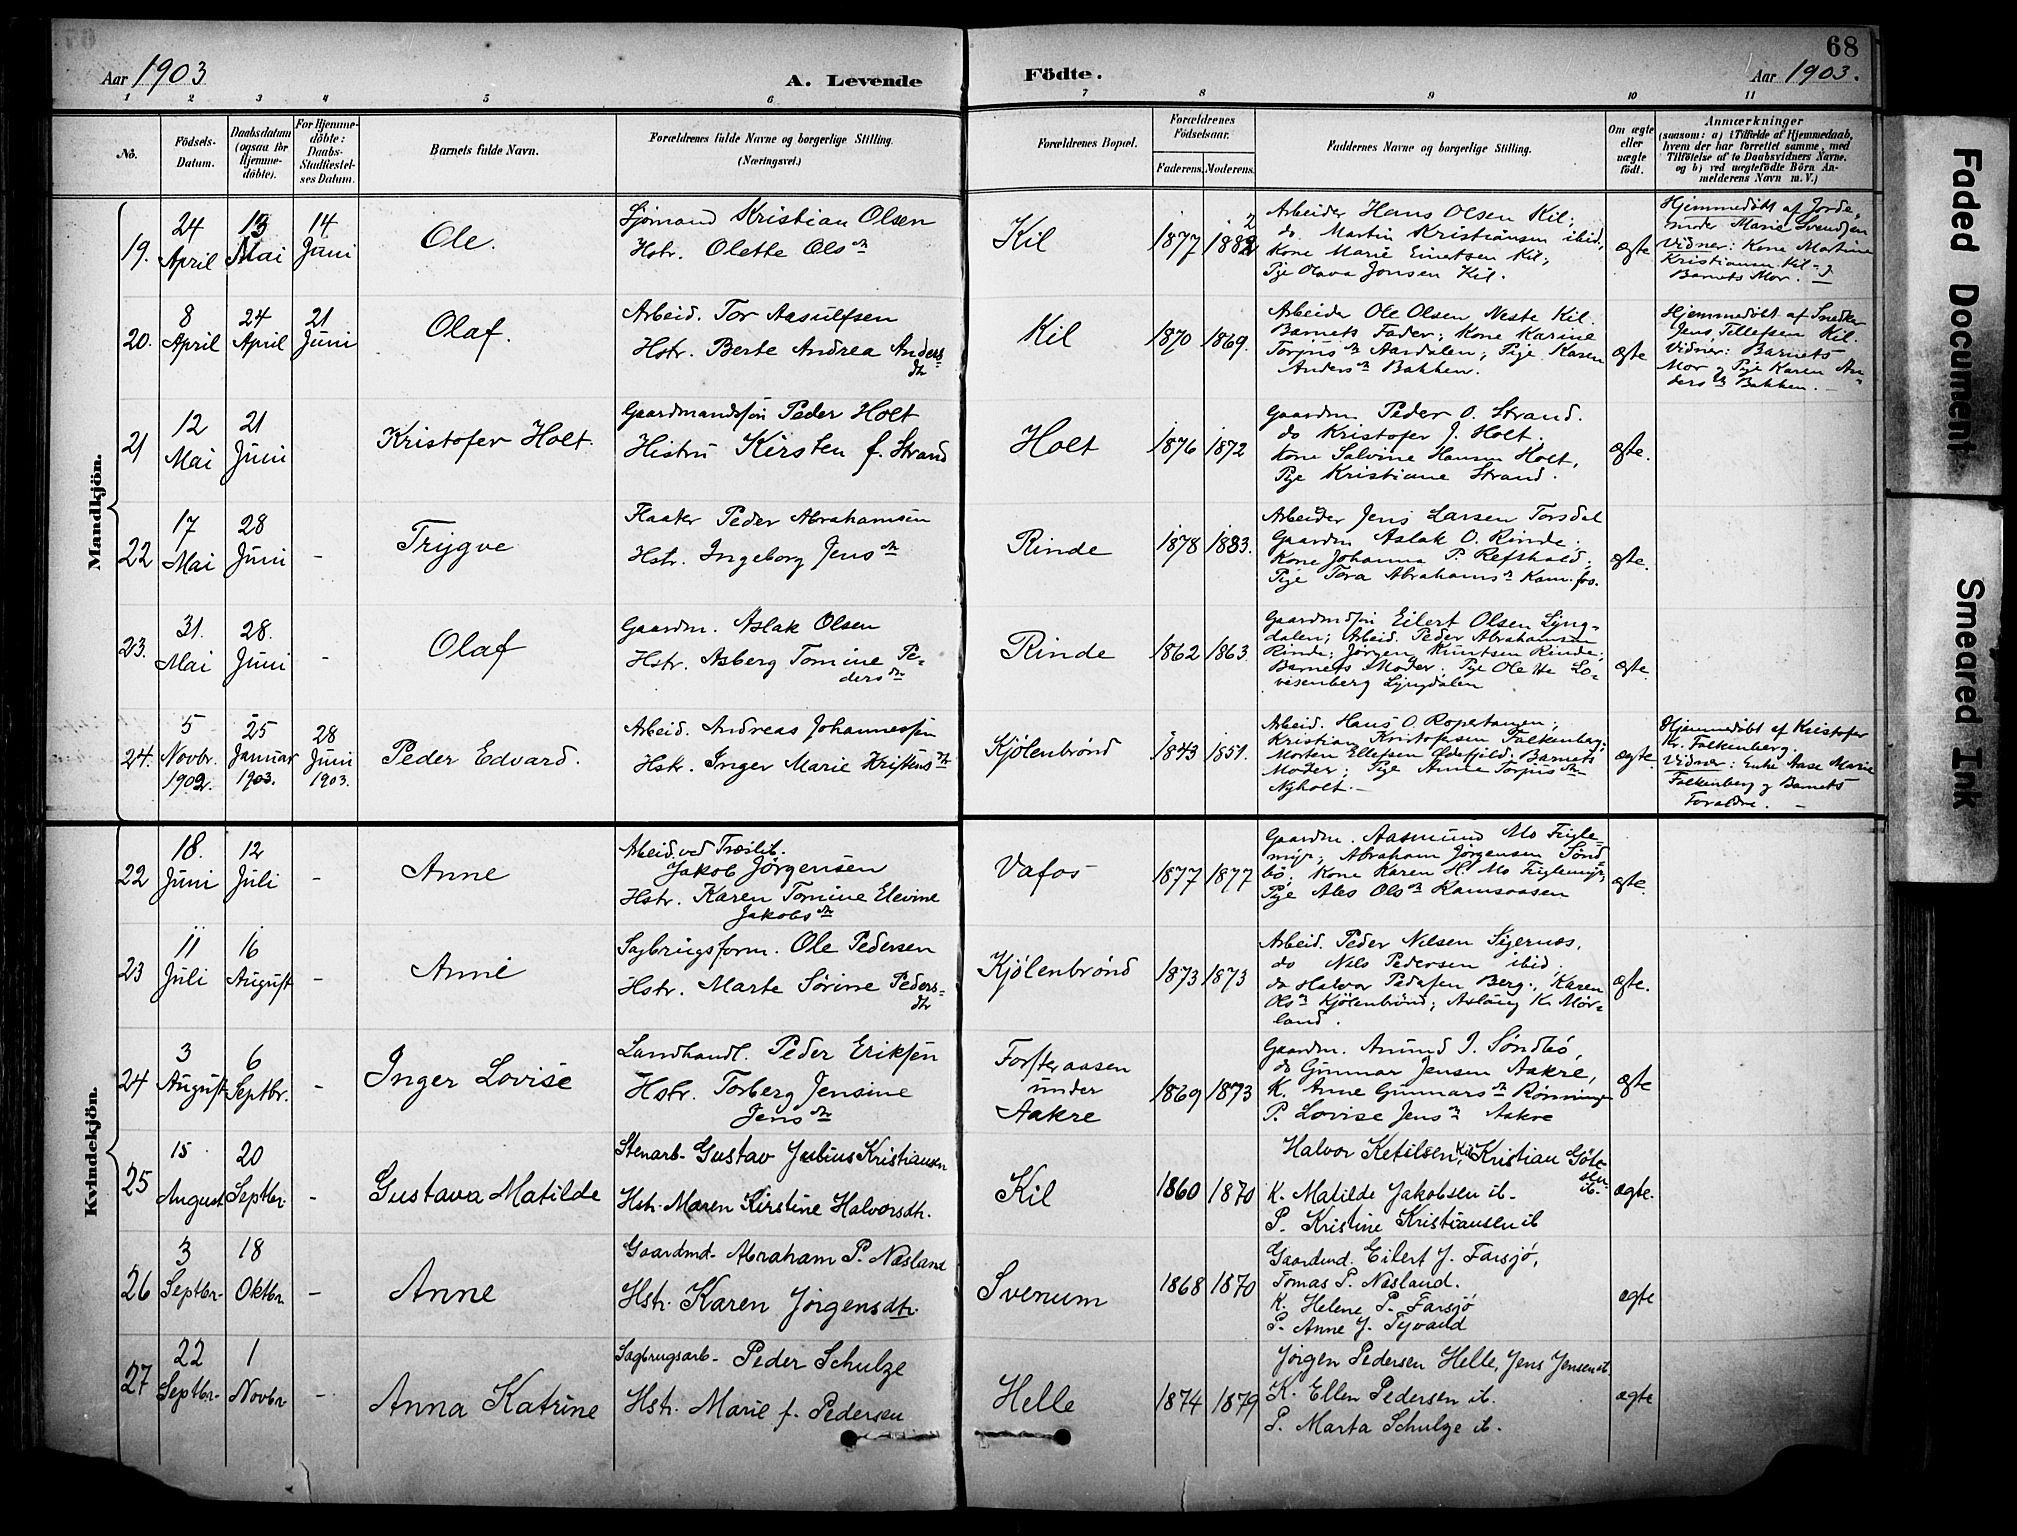 68
Aar 1903
A. Levende
Födte.
Aar 1903.
1 2 3 4 5 6 7 8 9 10 11
No.
Födsels-
Datum.
Daabsdatum
(ogsaa for
Hjemme-
döbte).
For Hjemme-
döbte:
Daabs-
Stadfæstel-
ses Datum.
Barnets fulde Navn.
Forældrenes fulde Navne og borgerlige Stilling.
(Næringsvei.)
Forældrenes Bopæl.
Forældrenes
Födselsaar.
Faderens. Moderens.
Faddernes Navne og borgerlige Stilling.
Om ægte
eller
uægte
födt.
Anmærkninger
(saasom: a) i Tilfælde af Hjemmedaab,
hvem der har forrettet samme, med
Tilföielse af to Daabsvidners Navne.
og b) ved uægtefödte Börn An-
melderens Navn m. V.)
Mandkjön.
19.
24
April
13
Mai
14
Juni
Ole.
Sjömand Kristian Olsen
Hstr. Olette Olsdr
Kil
1877
1882
2
Arbeider Hans Olsen Kil,
do. Martin Kristiansen ibid,
Kone Marie Einetsen Kil,
Pige Olava Jonsen Kil.
ægte
Hjemmedöbt af Jorde-
moder Marie Svendsen
Vidner: Kone Martine
Kristiansen Kil og
Barnets Mor.
20.
8
April
24
April
21
Juni
Olaf.
Arbeid. Tor Aasulfsen
Hstr. Berte Andrea Anders-
dtr
Kil
1870
1869.
Arbeider Ole Olsen Neste Kil.
Barnets Fader; Kone Karine
Torjusdr Aardalen; Pige Karen
Andersdr Bakken.
ægte
Hjemmedöbt af Snedker
Jens Tellefsen Kil.
Vidner: Barnets
Mor og Pige Karen An-
dersdr Bakken.
21
12
Mai
21
Juni
Kristofer Holt.
Gaardmandssön Peder Holt
Hustru Kirsten f. Strand
Holt
1876
1872
Gaardm. Peder O. Strand.
do Kristofer J. Holt.
Kone Salvine Hansen Holt,
Pige Kristiane Strand.
ægte.
22
17
Mai
28
Juni
-
Trygve
Flaater Peder Abrahamsen
Hstr. Ingeborg Jensdr
Rinde
1878
1883.
Arbeider Jens Larsen Torsdal
Gaardm Aslak O. Rinde.
Kone Johanna P. Refshald;
Pige Tora Abrahamsdr Kamfos.
ægte.
23.
31.
Mai
28.
Juni
-
Olaf
Gaardm. Aslak Olsen
Hstr. Asberg Tomine Pe-
dersdr
Rinde
1862
1863.
Gaardmdsön Eilert Olsen Lyng-
dalen; Arbeid. Peder Abrahamsen
Rinde; Jörgen Knutsen Rinde;
Barnets Moder. Pige Olette Lo-
visenberg Lyngdalen
ægte.
24.
5
Novbr.
1902.
25
Januar
1903.
28
Juni
1903.
Peder Edvard.
Arbeid. Andreas Johannessen
Hstr. Inger Marie Kristensdtr
Kjölenbrönd
1843
1851.
Arbeid. Hans O. Ropetanen;
Kristian Kristofersen Falkenberg;
Morten Ellefsen Barnets
Moder; Pige Anne Torjusdtr
Nyholt.
ægte.
Hjemmedöbt af Kristofer
Kr. Falkenberg.
Vidner: Enke Aase Marie
Falkenberg og Barnets
Foraldre.
Kvindekjön.
22
18.
Juni
12
Juli
-
Anne
Arbeid. ved Træslib.
Jakob Jörgensen
Hstr. Karen Tomine Elevine
Jakobsdr
Vafos
1877
1877
Gaardm. Aasmund Mo Fugle-
myr; Abraham Jörgensen Sönd-
bö, Kone Karen H. Mo Fuglemyr,
Pige Ales Olsdr Kamsaasen
ægte.
23
11
Juli
16
August
-
Anne
Sagbrugsform. Ole Pedersen
Hstr. Marte Sörine Peders-
dtr
Kjölenbrönd
1873
1873
Arbeid. Peder Nilsen Sigernæs,
do Nils Pedersen ibid.
do Halvor Pedersen Berg., Karen
Olsdr Kjölenbrönd; Aslaug K. Mör-
land.
ægte.
24
3
August
6
Septbr.
-
Inger Lovise
Landhandl. Peder Eriksen
Hstr. Torberg Jensine
Jensdr
Forsteraasen
under
Aakre
1869
1873
Gaardm. Amund J. Söndbö,
do Gunnar Jensen Aakre,
K. Anne Gunnarsdr Rönningen
P. Lovise Jensdr Aakre
ægte
25
15
August
20
Septbr
-
Gustava Matilde
Stenarb- Gustav Julius Kristiansen
Hstr. Maren Kirstine Halvorsdtr.
Kil
1860
1870
Halvor Ketilsen, Kil Kristian
ib-
K. Matilde Jakobsen ib-
P. Kristine Kristiansen ib
ægte.
26
3
Septbr-
18
Oktbr.
-
Anne
Gaardmd- Abraham P. Næsland
Hstr. Karen Jörgensdtr.
Svenum
1868
1870
Gaardmd. Eilert J. Farsjö,
Tomas P. Næsland.
K. Helene P. Farsjö
P. Anne J. Tyvand
ægte
27
22
Septbr-
1
Novbr
-
Anna Katrine
Sagbrugsarb- Peder Schulze
Hstr. Marie f. Pedersen
Helle
1874
1879
Jörgen Pedersen Helle, Jens Jensen ib
K. Ellen Pedersen ib.
P. Marta Schulze ib.
ægte
Faded Document
Smeared Ink